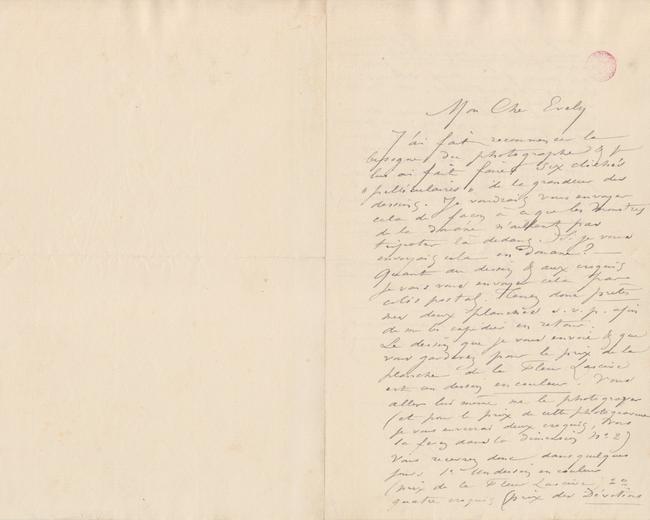 Mon Cher Evely
J'ai fait recommencer la
besogne du photographe &
lui ai fait faire six clichés
"pelliculaires" de la grandeur des
dessins. Je voudrais vous envoyer
cela de façon à ce que les monstres
de la douane n'aillent pas
tripoter là dedans. Si je vous
envoyais cela en Douane?
Quant au dessin & aux croquis
je vais vous envoyer cela par
colis postal. Tenez donc prêtes
mes deux planches s.v.p. afin
de me les expédier en retour.
Le dessin que je vous envoie & que
vous garderez pour le prix de la
planche de la Fleur Lascive
est un dessin en couleur. Vous
allez lui même me le photograver
(et pour le prix de cette photogravure
je vous enverrai deux croquis, vous
la ferez dans la dimension No 2)
Vous recevrez donc dans quelques
jours 1o Un dessin en couleur
(prix de la Fleur Lascive 2o
quatre croquis (prix des Dévotions